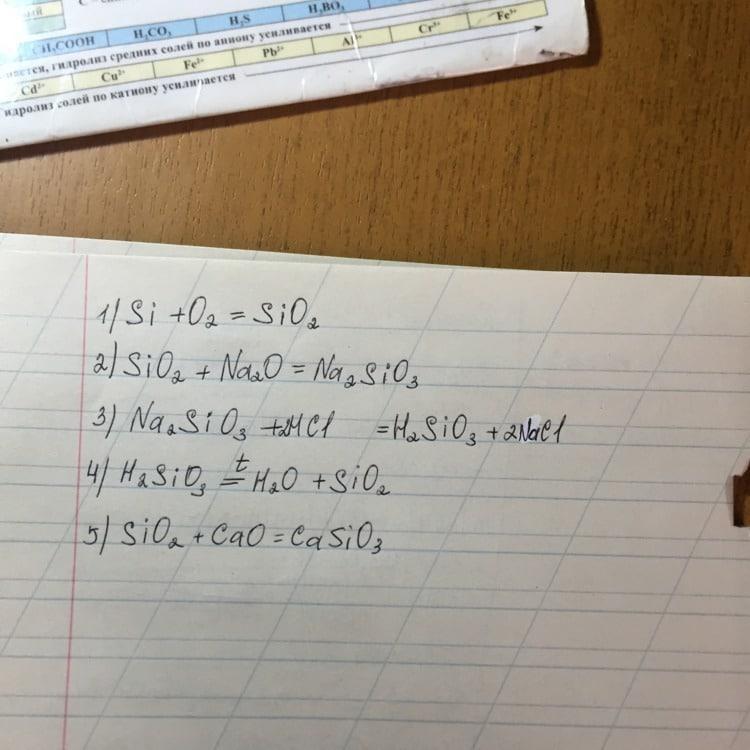 CH₃COOH H₂CO₃ H₂S H₃BO₃
гидролиз средних солей по аниону усиливается
Cd²⁺ Cu²⁺ Fe²⁺ Pb²⁺ Al³⁺ Cr³⁺ Fe³⁺
идролиз солей по катиону усиливается
1) Si + O₂ = SiO₂
2) SiO₂ + Na₂O = Na₂SiO₃
3) Na₂SiO₃ + 2HCl = H₂SiO₃ + 2NaCl
4) H₂SiO₃ =ᵗ H₂O + SiO₂
5) SiO₂ + CaO = CaSiO₃